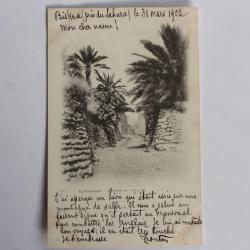 Biskra (près du Sahara) le 31 mars 1902
mon cher neveu !
J'ai aperçu un lion qui était assis sur une
montagne de sable. Il nous a salué en
faisant signe qu'il partait au Transvaal
pour combattre les Anglais. Je lui ai
bon voyage ; il en était très touché.
Je t'embrasse